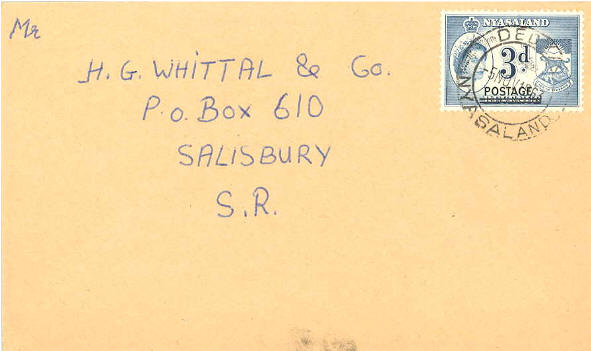 Mr
H. G. WHITTAL & Co.
P.o. Box 610
SALISBURY
S.R.
NYASALAND
3d
POSTAGE
NYASALAND